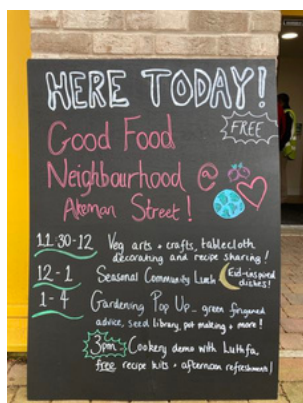 HERE TODAY!
FREE
Good Food
Neighbourhood @
Akeman Street!
11.30-12 Veg arts + crafts, tablecloth
decorating and recipe sharing!
12-1 Seasonal Community Lunch Eid-inspired
dishes!
1-4 Gardening Pop Up - green fingered
advice, seed library, pot making + more!
3pm Cookery demo with Luthfa,
free recipe kits + afternoon refreshments!